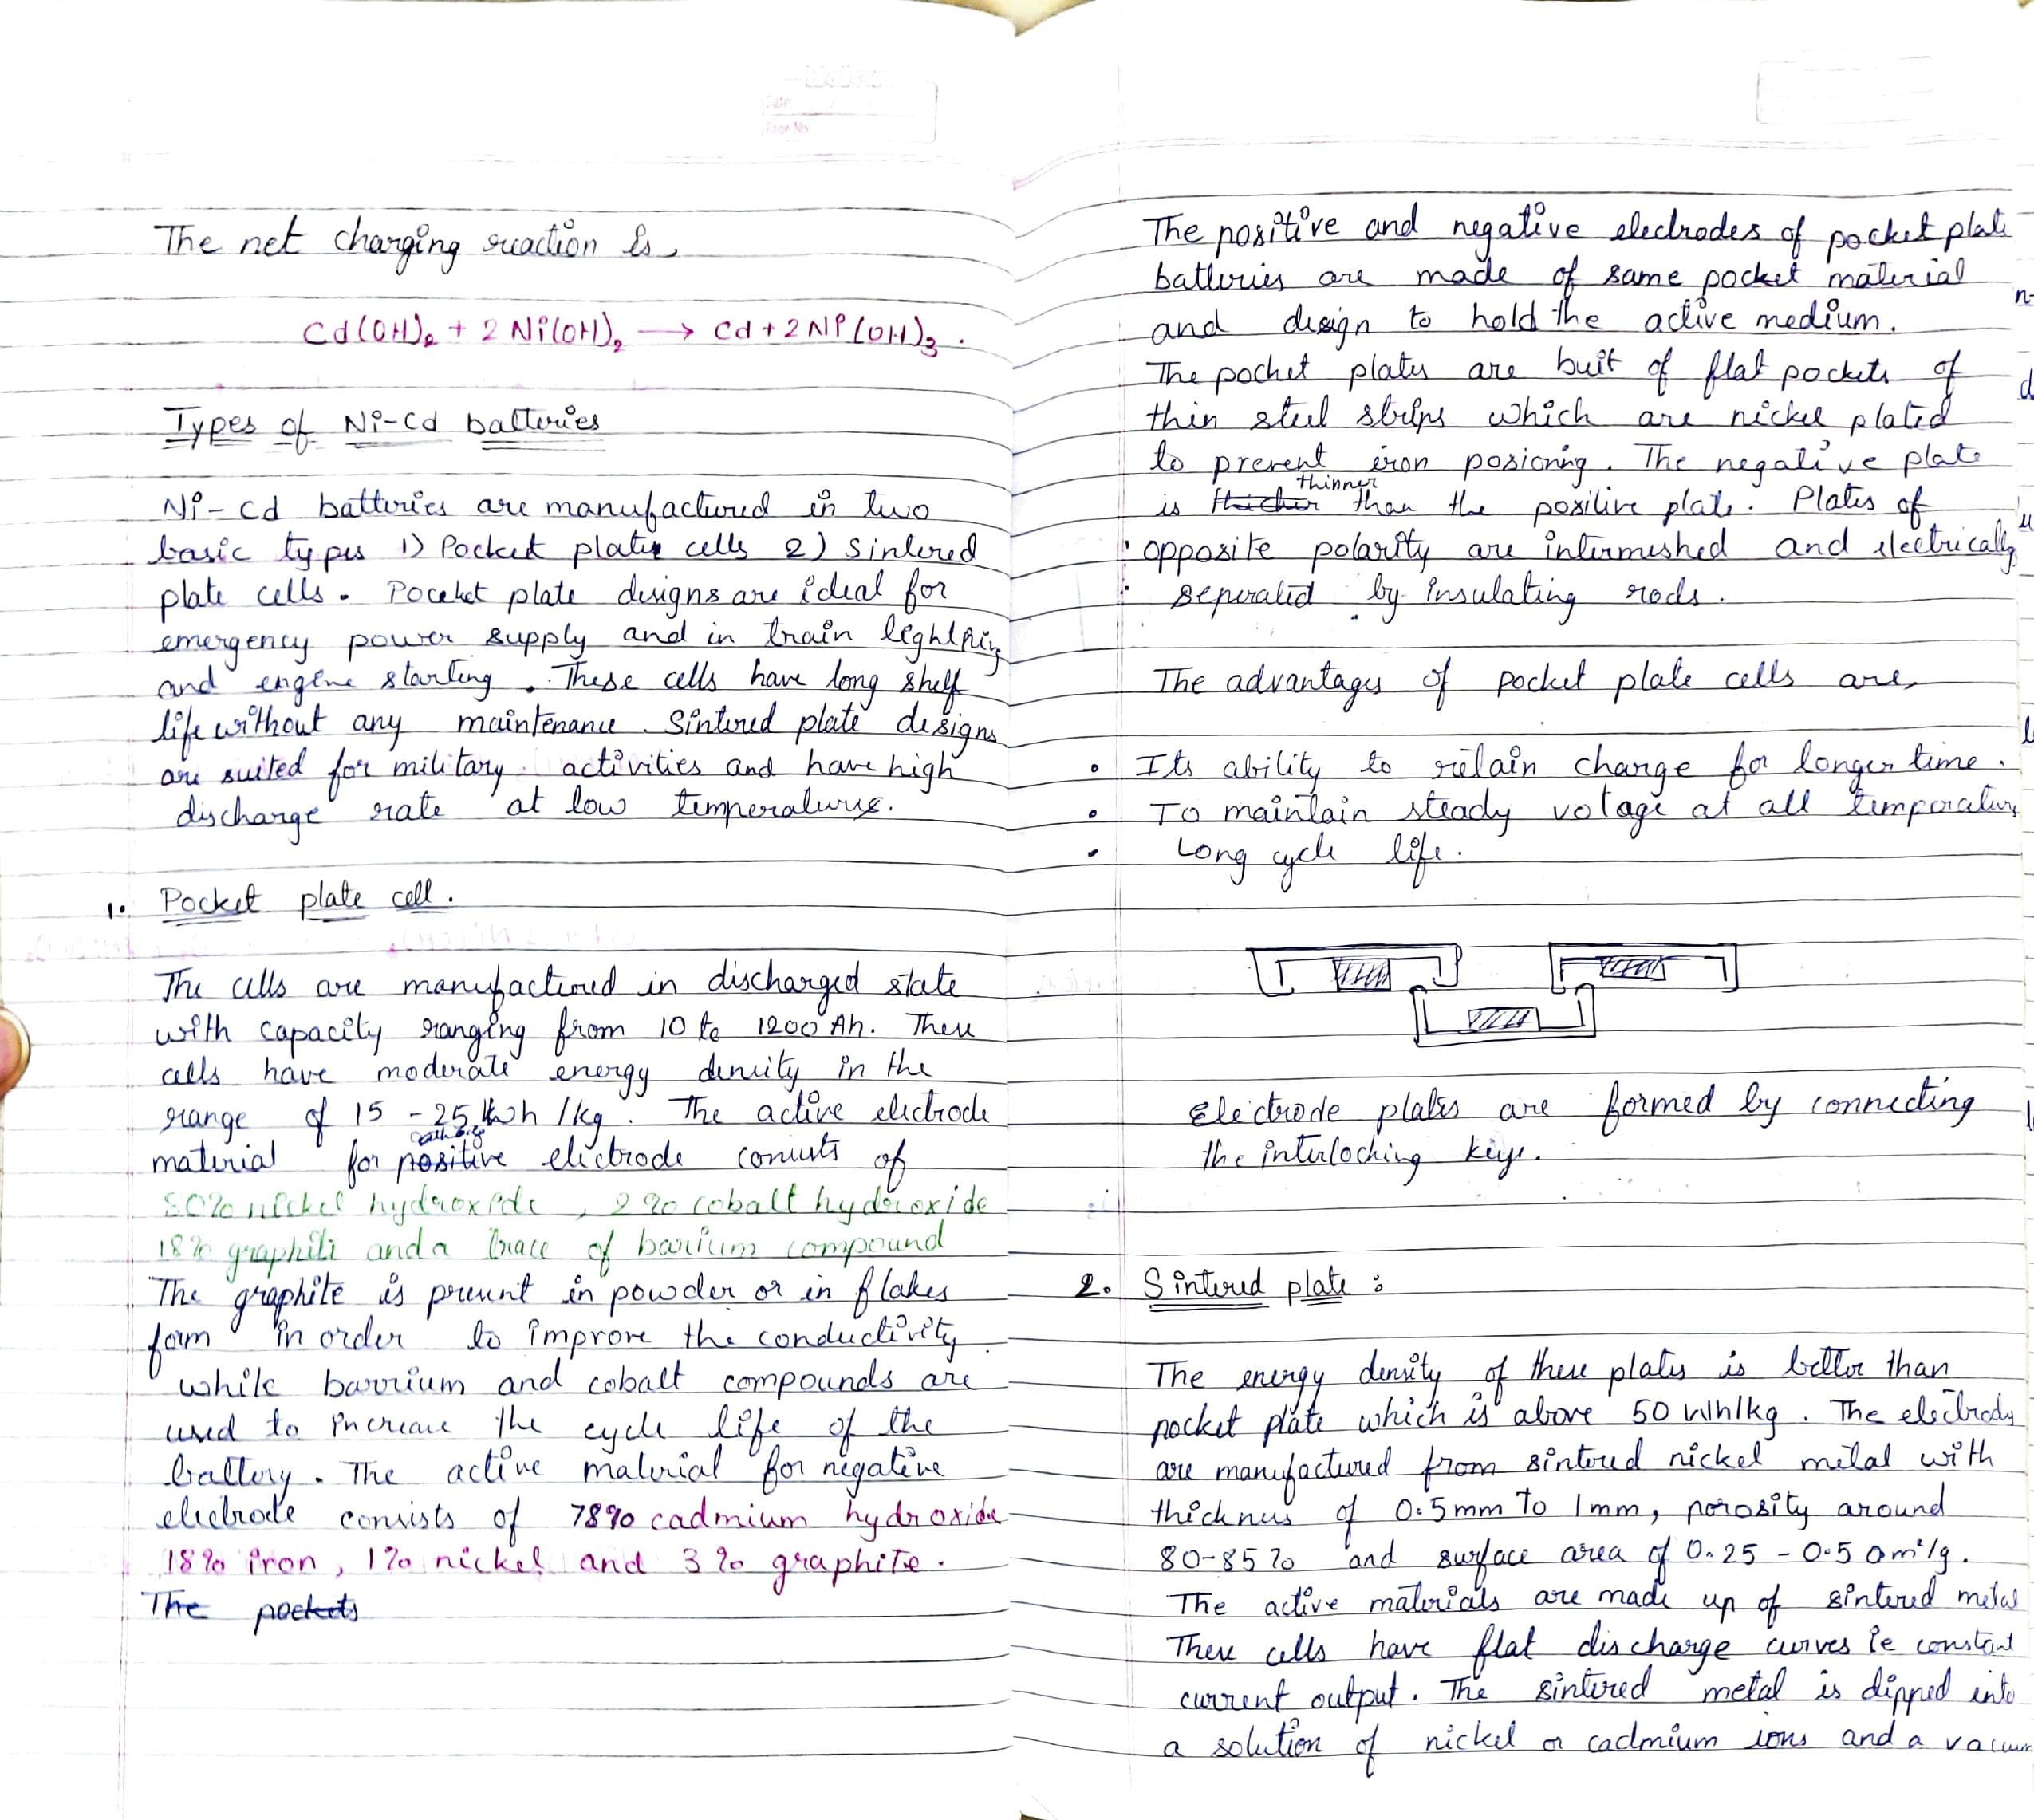 The net charging reaction is,
Cd(OH)₂ + 2 Ni(OH)₂ → Cd + 2 Ni(OH)₃.
Types of Ni-Cd batteries
Ni-Cd batteries are manufactured in two
basic types 1) Pocket plate cells 2) Sintered
plate cells. Pocket plate designs are ideal for
emergency power supply and in train lighting
and engine starting. These cells have long shelf
life without any maintenance. Sintered plate designs
are suited for military activities and have high
discharge rate at low temperatures.
1. Pocket plate cell.
The cells are manufactured in discharged state
with capacity ranging from 10 to 1200 Ah. These
cells have moderate energy density in the
range of 15 - 25 Wh/kg. The active electrode
material for positive electrode consists of
80% nickel hydroxide, 2% cobalt hydroxide
18% graphite and a trace of barium compound
The graphite is present in powder or in flakes
form in order to improve the conductivity
while barrium and cobalt compounds are
used to increase the cycle life of the
battery. The active material for negative
electrode consists of 78% cadmium hydroxide
18% iron, 1% nickel and 3% graphite.
The pockets
The positive and negative electrodes of pocket plate
batteries are made of same pocket material
and design to hold the active medium.
The pocket plates are buit of flat pockets of
thin steel strips which are nickel plated
to prevent iron posioning. The negative plate
thinner
is thicker than the positive plate. Plates of
opposite polarity are intermeshed and electrically
seperated by insulating rods.
The advantages of pocket plate cells are,
• Its ability to retain charge for longer time.
• To maintain steady voltage at all temperature
• Long cycle life.
Electrode plates are formed by connecting
the interlocking keys.
2. Sintered plate :
The energy density of these plates is better than
pocket plate which is above 50 Wh/kg. The electrodes
are manufactured from sintered nickel metal with
thickness of 0.5mm to 1mm, porosity around
80-85% and surface area of 0.25 - 0.5 m²/g.
The active materials are made up of sintered metal
These cells have flat discharge curves ie constant
current output. The sintered metal is dipped into
a solution of nickel or cadmium ions and a vacuum